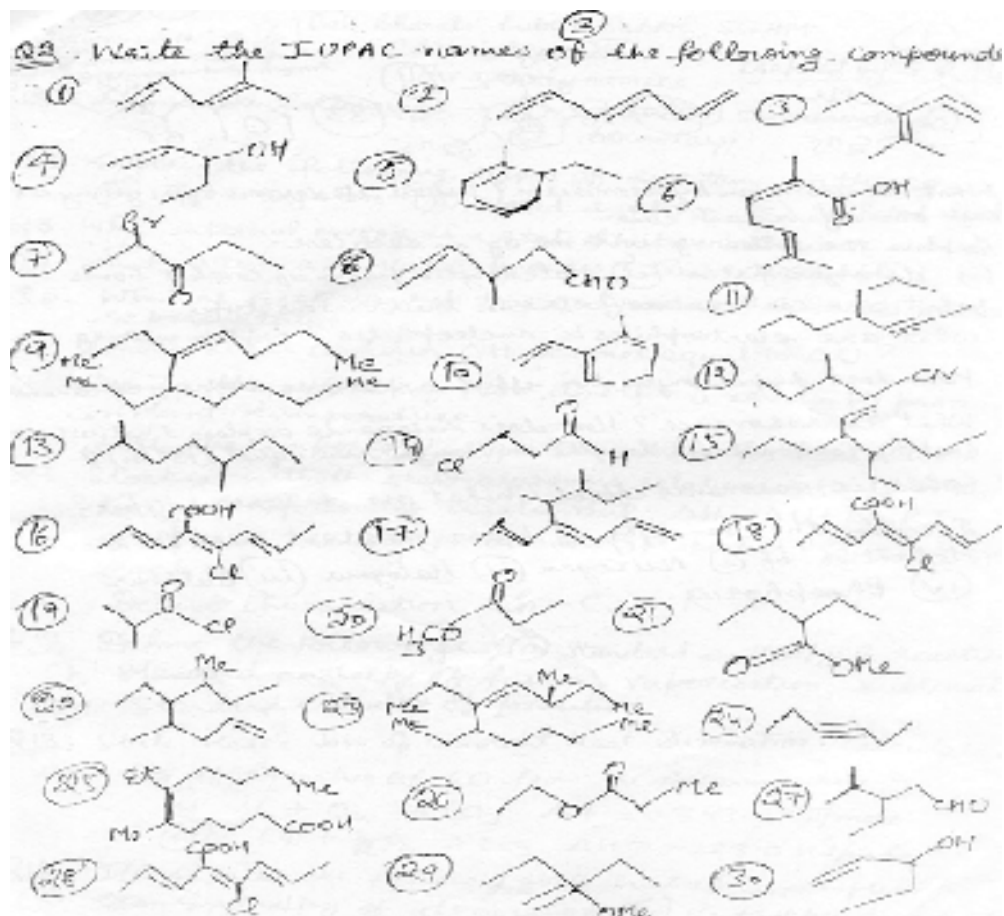 2
Q3 Write the IUPAC names of the following compounds
1 2 3
4 OH 5 6 OH O
7 Br O 8 CHO 11
9 Me Me Me Me 10 12 CN
13 14 O Cl H 15
16 COOH Cl 17 18 COOH Cl
19 O Cl 20 O H3CO 21 O OMe
22 Me 23 Me Me Me Me Me 24
25 Et Me Me COOH 26 O O Me 27 CHO
28 COOH Cl 29 OMe 30 OH